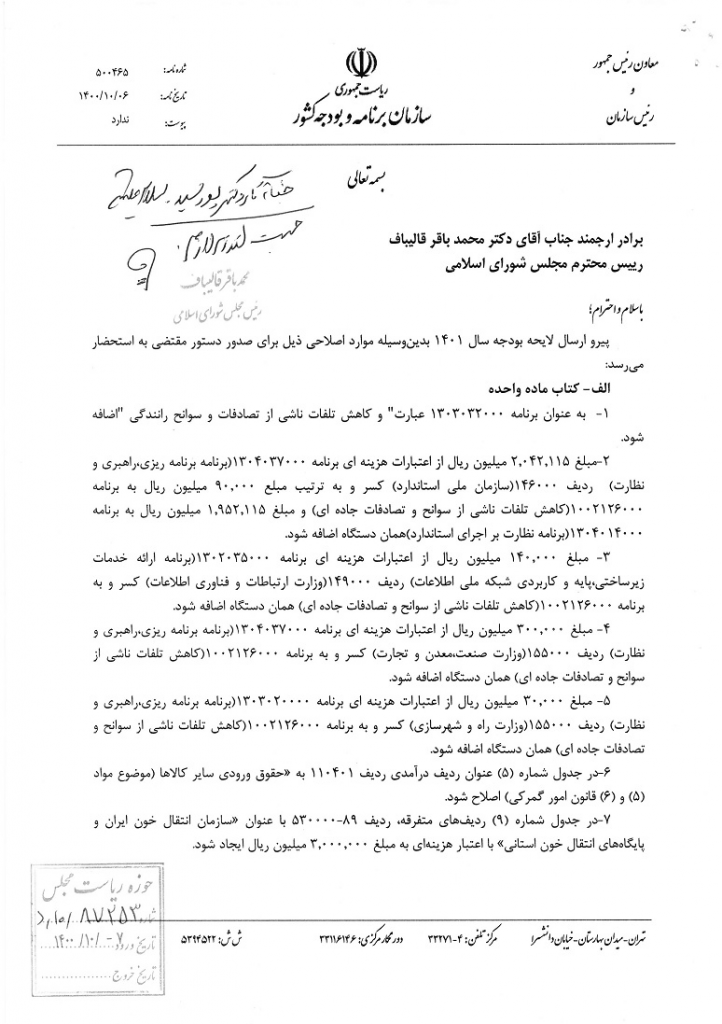 معاون رئیس جمهور
و
رئیس سازمان
ریاست جمهوری
سازمان برنامه و بودجه کشور
شماره نامه: ۵۰۰۴۶۵
تاریخ نامه: ۱۴۰۰/۱۰/۰۶
پیوست: ندارد
بسمه تعالی
جهت اقدام لازم
محمدباقر قالیباف
رئیس مجلس شورای اسلامی
برادر ارجمند جناب آقای دکتر محمد باقر قالیباف
رییس محترم مجلس شورای اسلامی
باسلام و احترام؛
پیرو ارسال لایحه بودجه سال ۱۴۰۱ بدین‌وسیله موارد اصلاحی ذیل برای صدور دستور مقتضی به استحضار
می‌رسد:
الف- کتاب ماده واحده
۱- به عنوان برنامه ۱۳۰۳۰۳۲۰۰۰ عبارت" و کاهش تلفات ناشی از تصادفات و سوانح رانندگی "اضافه
شود.
۲-مبلغ ۲,۰۴۲,۱۱۵ میلیون ریال از اعتبارات هزینه ای برنامه ۱۳۰۴۰۳۷۰۰۰(برنامه برنامه ریزی،راهبری و
نظارت) ردیف ۱۴۶۰۰۰(سازمان ملی استاندارد) کسر و به ترتیب مبلغ ۹۰,۰۰۰ میلیون ریال به برنامه
۱۰۰۲۱۲۶۰۰۰(کاهش تلفات ناشی از سوانح و تصادفات جاده ای) و مبلغ ۱,۹۵۲,۱۱۵ میلیون ریال به برنامه
۱۳۰۴۰۱۴۰۰۰(برنامه نظارت بر اجرای استاندارد)همان دستگاه اضافه شود.
۳- مبلغ ۱۴۰,۰۰۰ میلیون ریال از اعتبارات هزینه ای برنامه ۱۳۰۲۰۳۵۰۰۰(برنامه ارائه خدمات
زیرساختی،پایه و کاربردی شبکه ملی اطلاعات) ردیف ۱۴۹۰۰۰(وزارت ارتباطات و فناوری اطلاعات) کسر و به
برنامه ۱۰۰۲۱۲۶۰۰۰(کاهش تلفات ناشی از سوانح و تصادفات جاده ای) همان دستگاه اضافه شود.
۴- مبلغ ۳۰۰,۰۰۰ میلیون ریال از اعتبارات هزینه ای برنامه ۱۳۰۴۰۳۷۰۰۰(برنامه برنامه ریزی،راهبری و
نظارت) ردیف ۱۵۵۰۰۰(وزارت صنعت،معدن و تجارت) کسر و به برنامه ۱۰۰۲۱۲۶۰۰۰(کاهش تلفات ناشی از
سوانح و تصادفات جاده ای) همان دستگاه اضافه شود.
۵- مبلغ ۳۰,۰۰۰ میلیون ریال از اعتبارات هزینه ای برنامه ۱۳۰۳۰۲۰۰۰۰(برنامه برنامه ریزی،راهبری و
نظارت) ردیف ۱۵۵۰۰۰(وزارت راه و شهرسازی) کسر و به برنامه ۱۰۰۲۱۲۶۰۰۰(کاهش تلفات ناشی از سوانح و
تصادفات جاده ای) همان دستگاه اضافه شود.
۶-در جدول شماره (۵) عنوان ردیف درآمدی ردیف ۱۱۰۴۰۱ به «حقوق ورودی سایر کالاها (موضوع مواد
(۵) و (۶) قانون امور گمرکی) اصلاح شود.
۷-در جدول شماره (۹) ردیف‌های متفرقه، ردیف ۸۹-۵۳۰۰۰۰ با عنوان «سازمان انتقال خون ایران و
پایگاه‌های انتقال خون استانی» با اعتبار هزینه‌ای به مبلغ ۳,۰۰۰,۰۰۰ میلیون ریال ایجاد شود.
حوزه ریاست مجلس
شماره ۸۷۲۵۳
تاریخ ورود ۱۴۰۰/۱۰/۰۷
تاریخ خروج
تهران-میدان بهارستان-خیابان دانشسرا مرکز تلفن: ۴-۳۳۲۷۱ دورنگار مرکزی: ۳۳۱۱۶۱۴۶ ش ش: ۵۳۹۴۵۲۲